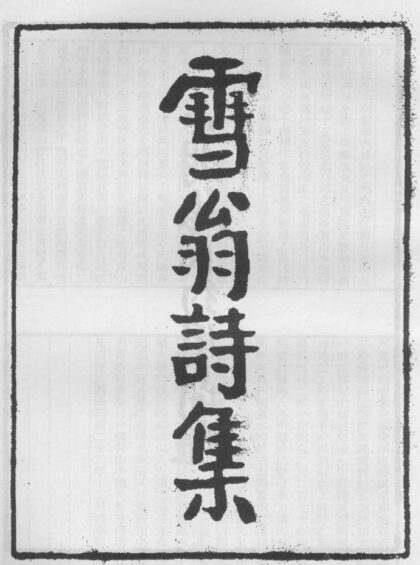 雪翁詩集